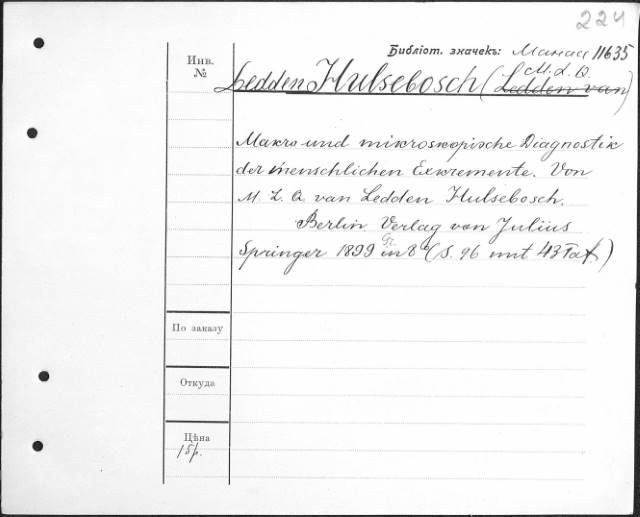 224
Библіот. значекъ: Манас 11635
Инв. №
Ledden Hulsebosch (Ledden van)
M. L. Q.
Makro und mikroskopische Diagnostik
der menschlichen Exkremente. Von
M L Q van Ledden Hulsebosch.
Berlin Verlag von Julius
Springer 1899 Gr. in 8° (S. 96 mit 43 Taf.)
По заказу
Откуда
Цѣна
15р.